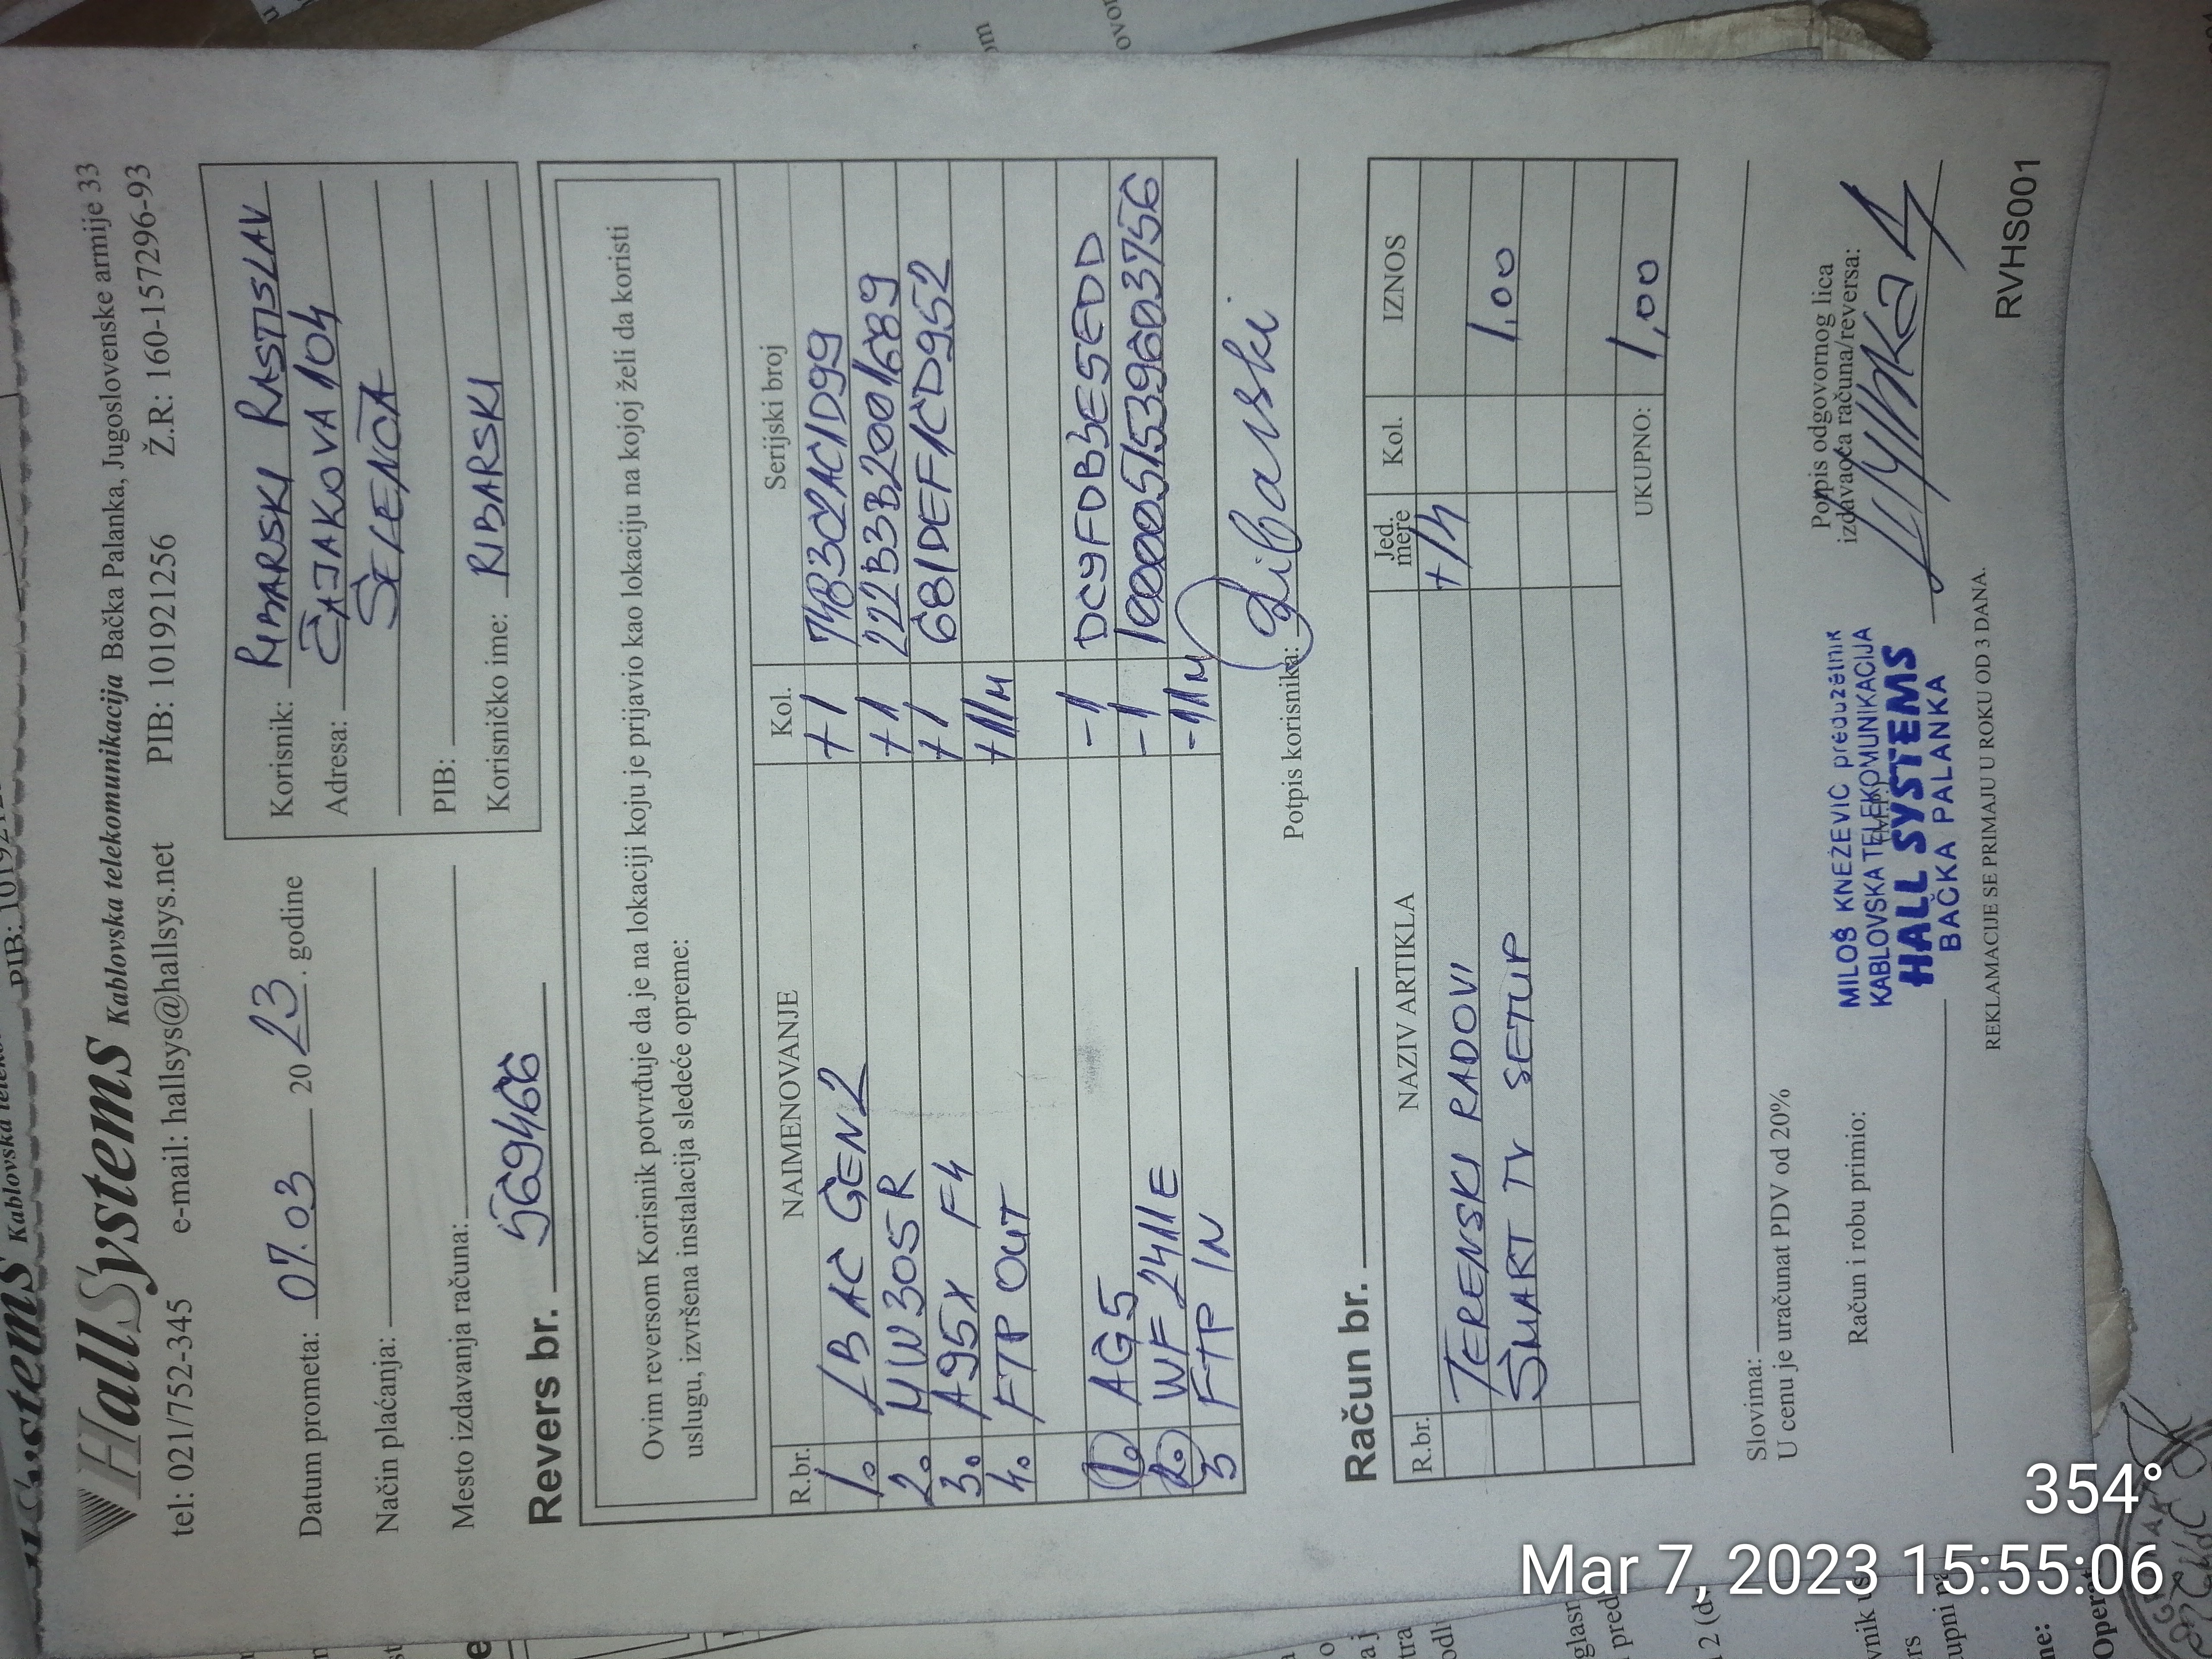 HallSystems Kablovska telekomunikacija Bačka Palanka, Jugoslovenske armije 33
tel: 021/752-345 e-mail: hallsys@hallsys.net PIB: 101921256 Ž.R: 160-1572296-93
Datum prometa: 07.03 2023. godine
Način plaćanja:
Mesto izdavanja računa:
Korisnik: RIBARSKI RASTISLAV
Adresa: ČAJAKOVA 104
SELENČA
PIB:
Korisničko ime: RIBARSKI
Revers br. 569466
Ovim reversom Korisnik potvrđuje da je na lokaciji koju je prijavio kao lokaciju na kojoj želi da koristi
uslugu, izvršena instalacija sledeće opreme:
R.br. NAIMENOVANJE Kol. Serijski broj
1. LB AC GEN2 +1 74B3C2AC1D99
2. MW305R +1 222B3B2001689
3. A95X F4 +1 681DEF1CD952
4. FTP OUT +11M
1. AG5 -1 DC9FDB3E5EDD
2. WF2411E -1 1000051539603756
3 FTP IN -11M
Potpis korisnika: Ribarski
Račun br.
R.br. NAZIV ARTIKLA Jed. mere Kol. IZNOS
TERENSKI RADOVI +1h
SMART TV SETUP 1,00
UKUPNO: 1,00
Slovima:
U cenu je uračunat PDV od 20%
Račun i robu primio:
MILOŠ KNEŽEVIĆ preduzetnik
KABLOVSKA TELEKOMUNIKACIJA
HALL SYSTEMS
BAČKA PALANKA
Potpis odgovornog lica
izdavaoca računa/reversa:
REKLAMACIJE SE PRIMAJU U ROKU OD 3 DANA.
RVHS001
354°
Mar 7, 2023 15:55:06